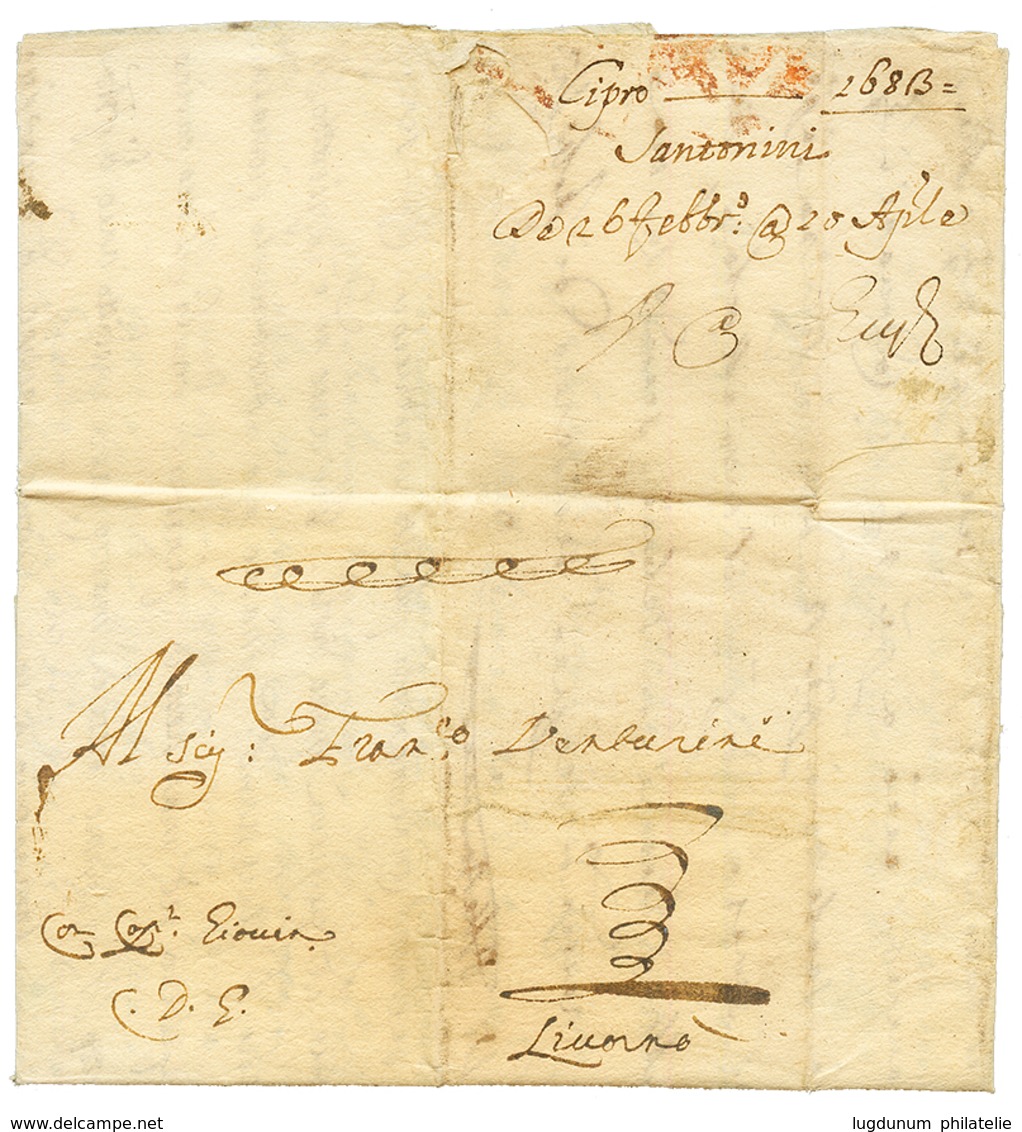 Cipro 1683 =
Santonini
De 26 febbr:o @ 20 Aple
@
Al sig: Franco: Venturini
Con Capn:
C. D. G.
Livorno
delcampe.net
lugdunum philatelie